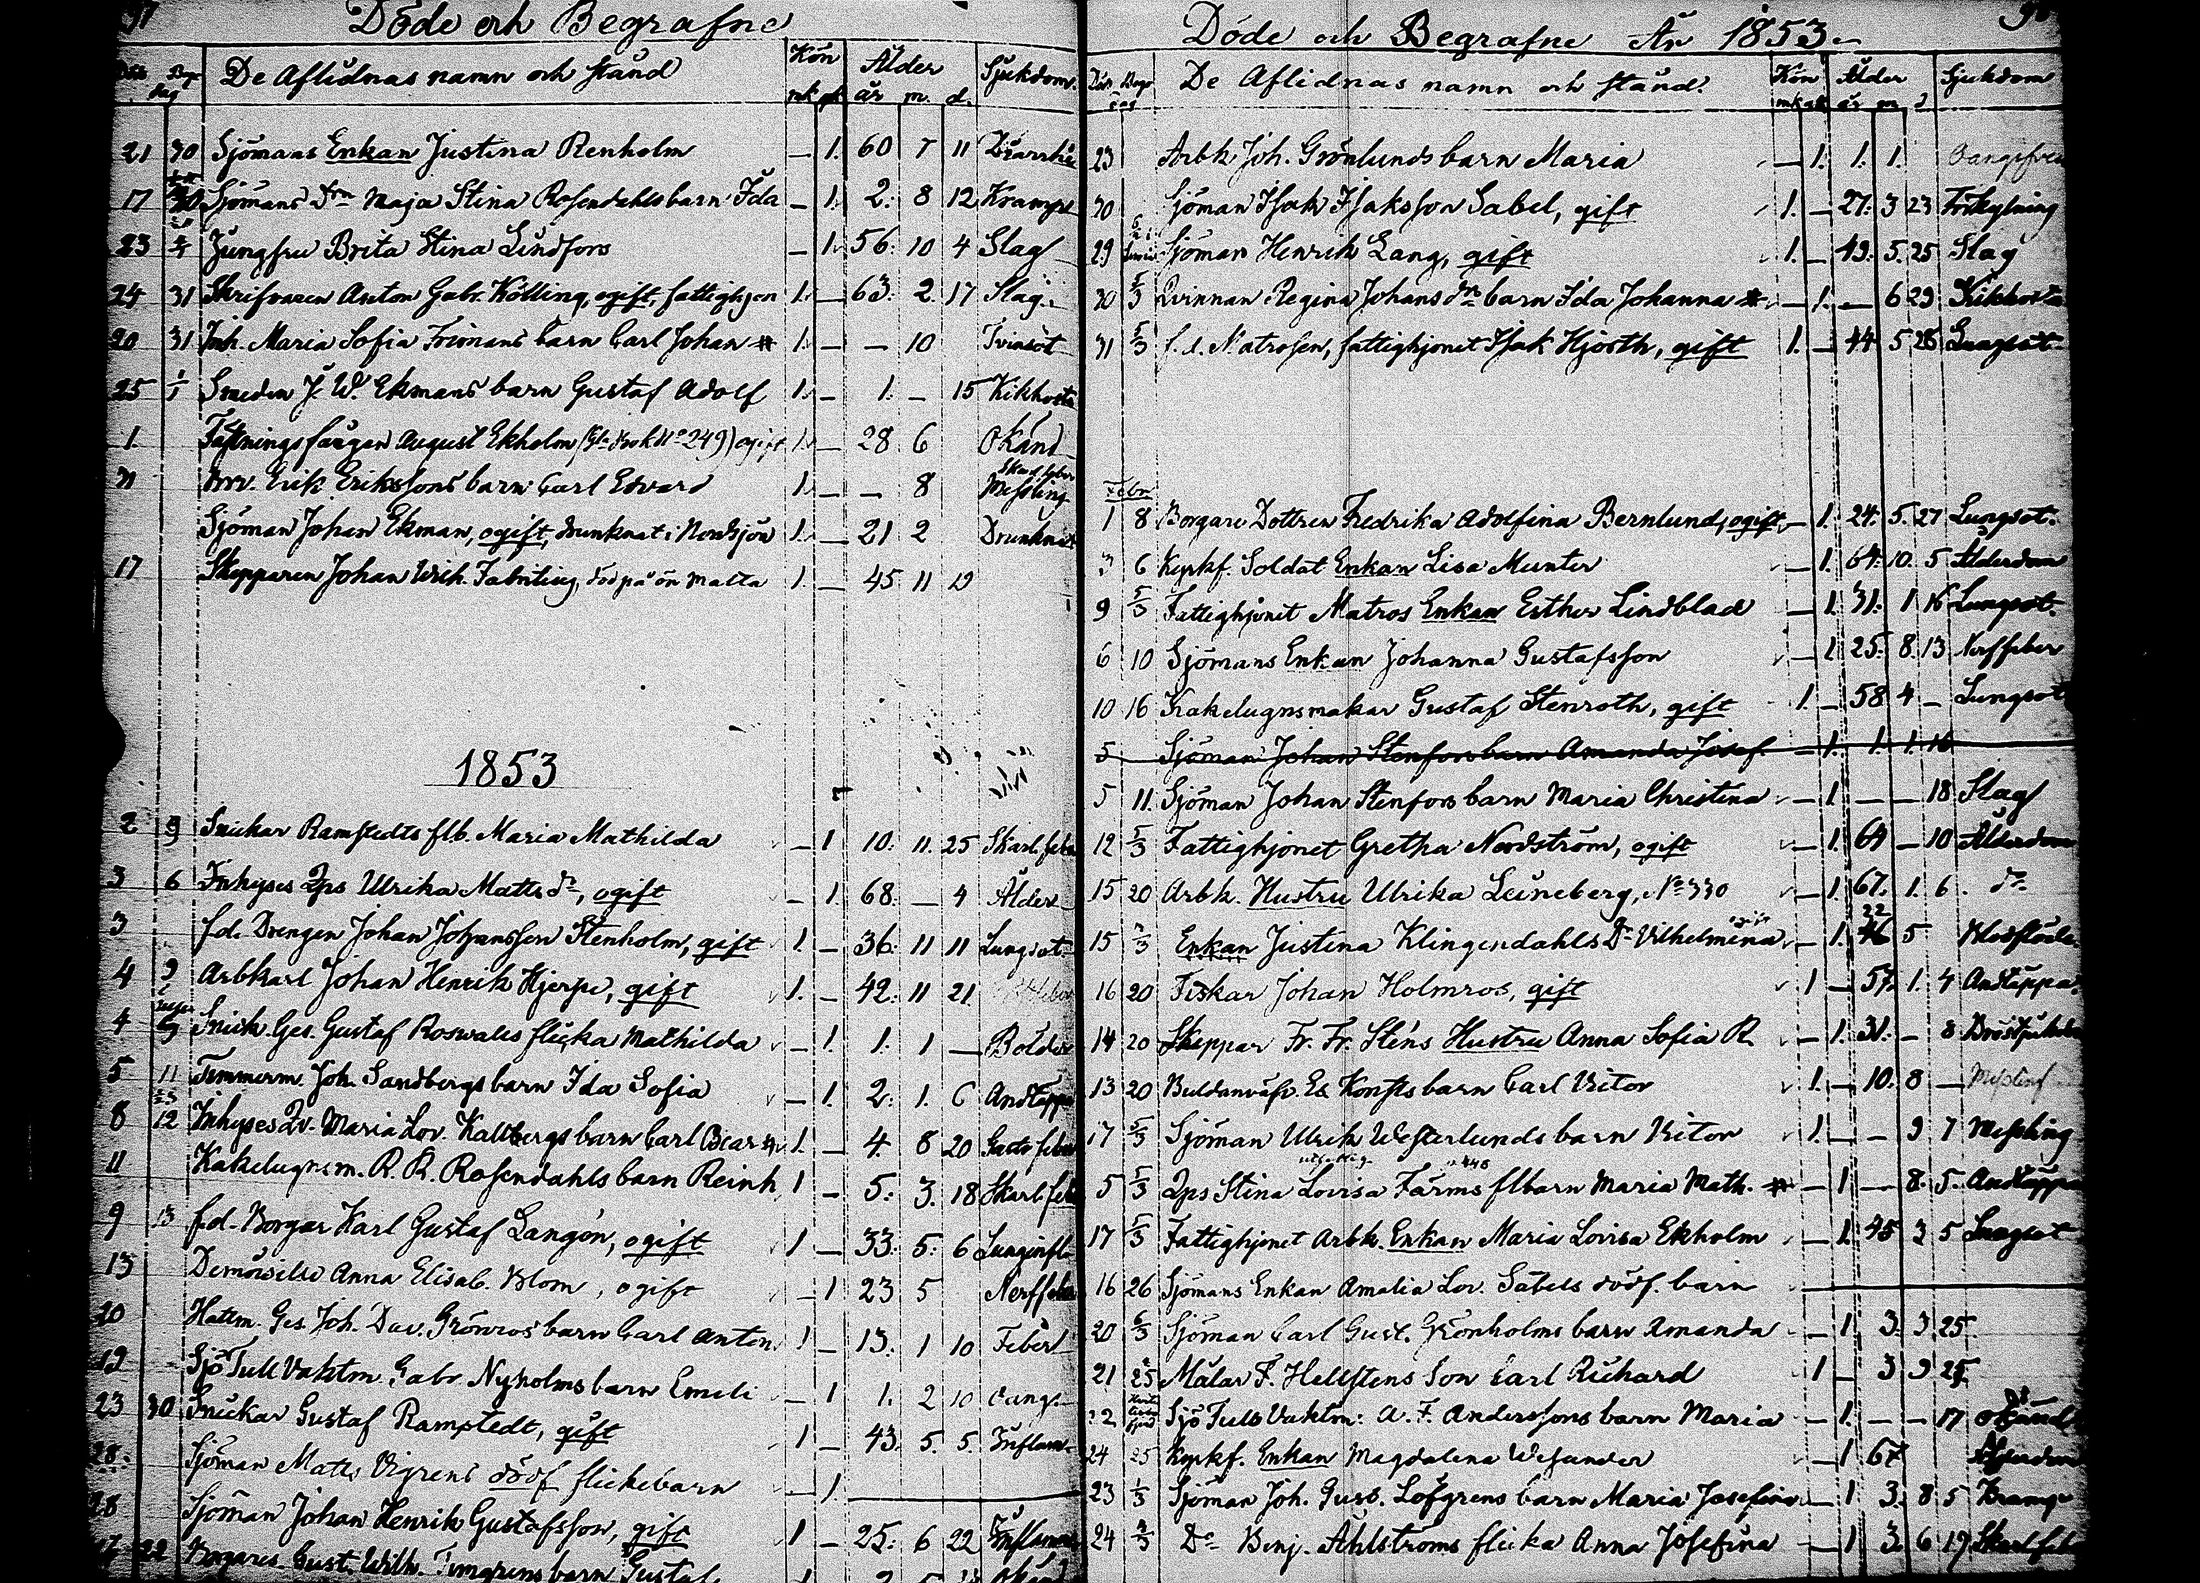 97
Döde och Begrafne
Död Begr. dag De Aflidnas namn och stånd Kön mk qk Ålder år m. d. Sjukdom.
21 30 Sjömans Enkan Justina Renholm — 1. 60 7 11 Diarrhée
17 Sjömans Dtrn Maja Stina Rosendahls barn Ida — 1. 2. 8 12 Kramp
23 Jungfru Brita Stina Lindfors — 1. 56. 10 4 Slag
24 31 Skrifvaren Anton Gabr. Kölling, ogift, fattighjon 1. — 63. 2. 17 Slag.
20 31 Inh. Maria Sofia Frimans barn Carl Johan # 1. — — 10 Tvinsot
25 1/1 Smeden J. W. Ekmans barn Gustaf Adolf 1. — 1. — 15 Kikhosta
1 Fästningsfången August Ekholm, No 249) ogift 1. — 28 6 Okänd
31 Erik Erikssons barn Carl Edvard 1. — — 8 Messling
Sjöman Johan Ekman, ogift, drunknat i Nordsjön 1. — 21 2 Drunknat
17 Skepparen Johan Wilh. död på ön Malta 1. — 45 11 19
1853
2 9 Snickar Ramstedts flb. Maria Mathilda — 1 10. 11. 25 Skarl. feber
3 6 Inhyses Qps Ulrika Matts dr, ogift — 1. 68. — 4 Ålder
3 f.d. Drengen Johan Johansson Stenholm, gift 1. — 36. 11 11 Lungsot
4 9 Arbkarl Johan Henrik Hjerpe, gift 1. — 42. 11 21.
4 9 Snick. Ges. Gustaf Roswalls flicka Mathilda — 1. 1. 1 — Bölder
5 11 Timmerm. Joh. Sandbergs barn Ida Sofia — 1. 2. 1. 6 Andtäppa
8 12 Inhyses Qv. Maria Lov. Kallbergs barn Carl Oscar # 1. — 4. 8 20 feber
11 Kakelugnsm. R. R. Rosendahls barn Reinh. 1 — 5. 3. 18 Skarl. feb
9 13 f.d. Borgar Karl Gustaf Langén, ogift 1 — 33. 5. 6 Lunginfl
13 Demoiselle Anna Elisab. Blom, ogift — 1 23 5 Nerffeber
20 Hattm. Ges. Joh. Dav. Grönros barn Carl Anton 1 — 13. 1 10 Feber
19 Sjö Tull Vaktm. Gabr Nyholms barn Emeli — 1 1. 2 10
23 30 Snickar Gustaf Ramstedt, gift 1 — 43. 5. 5. Inflam
28. Sjöman Matts Vigrens dödf flickebarn — 1.
28 Sjöman Johan Henrik Gustafsson, gift 1 — 25. 6 22 Inflamma
22 Borgares Gust. Wilh. barn Gustaf
Döde och Begrafne År 1853.
Död Begr dag De Aflidnas namn och stånd. Kön mk qk Ålder år m d Sjukdom
23 Arbk Joh. Grönlunds barn Maria — 1. 1. 1.
30 Sjöman Isak Isaksson Sabel, gift 1. — 27. 3 23 Förkylning
29 Sjöman Henrik Lang, gift 1. — 43. 5. 25 Slag
30 5/3 Qvinnan Regina Johans drs barn Ida Johanna # — 1. — 6 29 Kikhosta
31 5/3 f.d. Matrosen, fattighjonet Isak Hjorth, gift 1. — 44 5 28 Lungsot
Febr
1 8 Borgare Dottren Fredrika Adolfina Bernlund, ogift — 1. 24. 5. 27 Lungsot.
3 6 Kyrkf. Soldat Enkan Lisa Munter — 1. 64. 10. 5 Ålderdom
9 5/3 Fattighjonet Matros Enkan Esther Lindblad — 1. 31. 1 16 Lungsot.
6 10 Sjömans Enkan Johanna Gustafsson — 1 25. 8. 13 Nerffeber
10 16 Kakelugnsmakar Gustaf Stenroth, gift 1. — 58 4 — Lungsot
5 Sjöman Johan Stenfors barn Amanda Josef. — 1. 1. 1. 16
5 11. Sjöman Johan Stenfors barn Maria Christina — 1. — — 18 Slag
12 5/3 Fattighjonet Gretha Nordström, ogift — 1. 64 — 10 Ålderdom
15 20 Arbk. Hustru Ulrika Leineberg, No 330 — 1. 67. 1. 6. do
15 5/3 Enkan Justina Klingendahls Dr Vilhelmina ogift — 1. 22 5 Blodflöde
16 20 Fiskar Johan Holmros, gift 1 — 57. 1. 4 Andtäppa.
14 20 Skeppar Fr. Fr. Sténs Hustru Anna Sofia R. — 1. 31. — 8 Bröstsjukdom
13 20 barn Carl Victor 1. — 10. 8 — Messling
17 5/3 Sjöman Ulrik Westerlunds barn Victor 1. — — 9 7 Messling
5 5/3 Qps Stina Lovisa Farms flbarn Maria Math. # — 1 — 8. 5. Andtäppa
17 5/3 Fattighjonet Arbk. Enkan Maria Lovisa Ekholm — 1. 45 3 5 Lungsot
16 26 Sjömans Enkan Amalia Lov. Sabels dödf. barn
20 5/3 Sjöman Carl Gust. Grönholms barn Amanda — 1. 3. 3 25
21 25 Målar F. Hellstens Son Carl Richard 1 — 3 9 25
22 Sjö Tull Vaktm: A. F. Anderssons barn Maria — 1. — — 17 Okänd
24 25 Kyrkf. Enkan Magdalena Wesander — 1 67 Ålderdom
23 1/3 Sjöman Joh. Gust. Löfgrens barn Maria Josefina — 1 3. 8 5 Kramp
24 Do Benj. Åhlströms flicka Anna Josefina — 1 3. 6 19 Skarl. feb